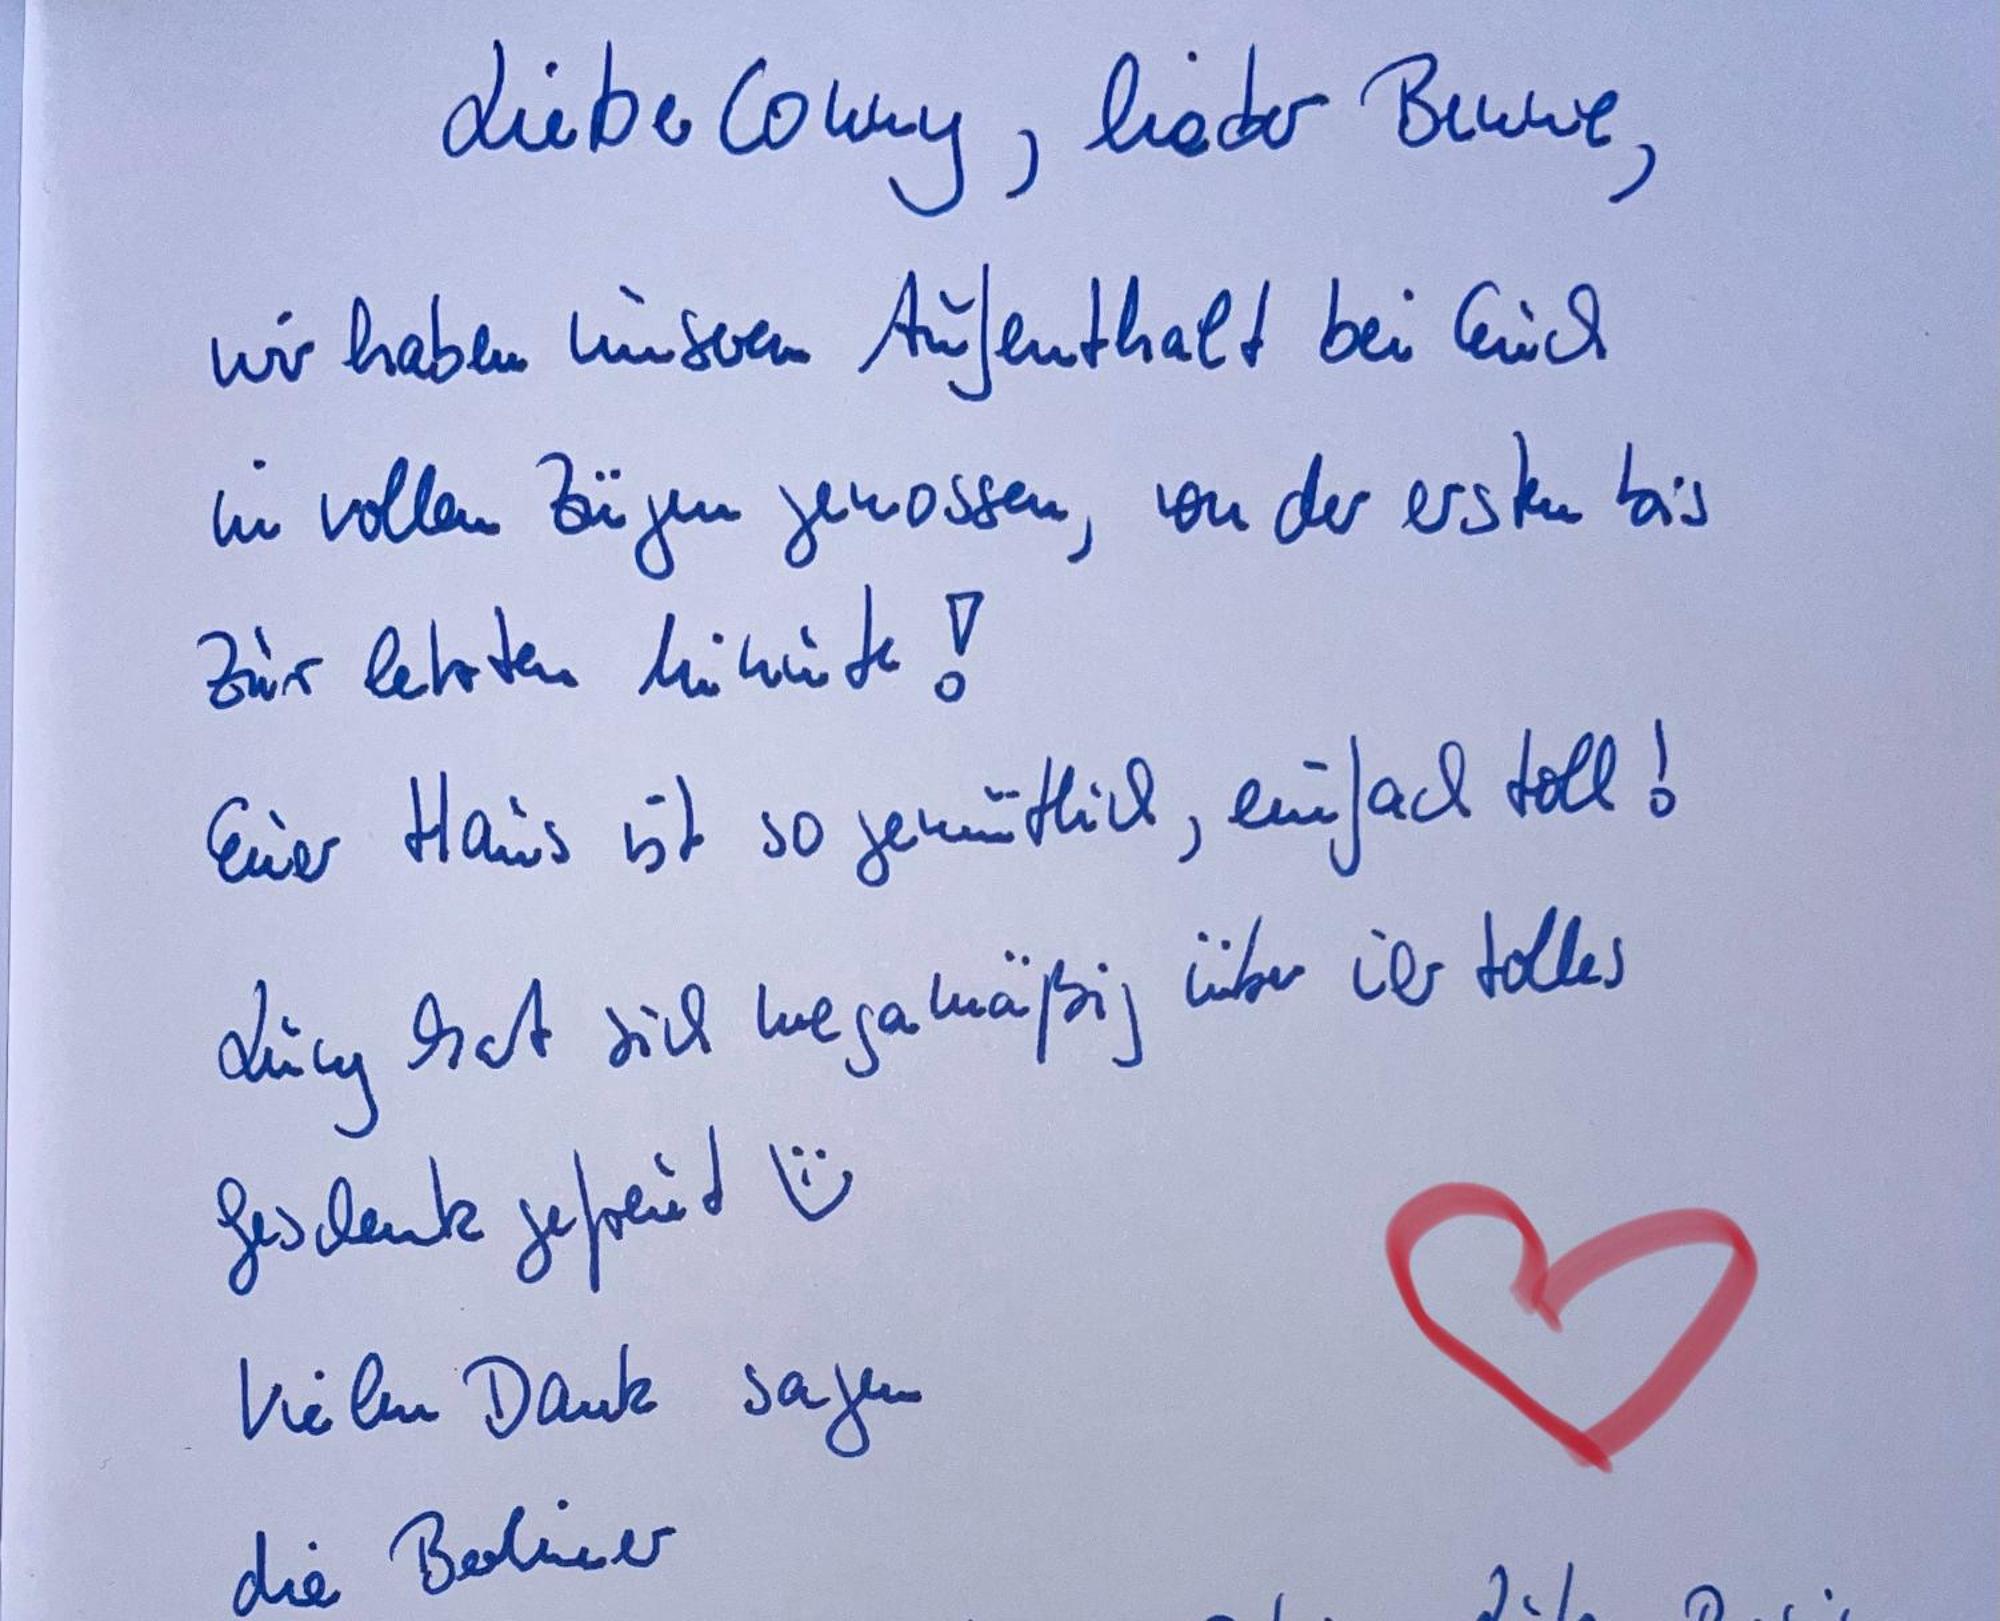 Liebe Conny, lieber Bennie,
wir haben unseren Aufenthalt bei Euch
in vollen Zügen genossen, von der ersten bis
zur letzten Minute!
Euer Haus ist so gemütlich, einfach toll!
Lucy hat sich megamäßig über ihr tolles
Geschenk gefreut
Vielen Dank sagen
die Berliner